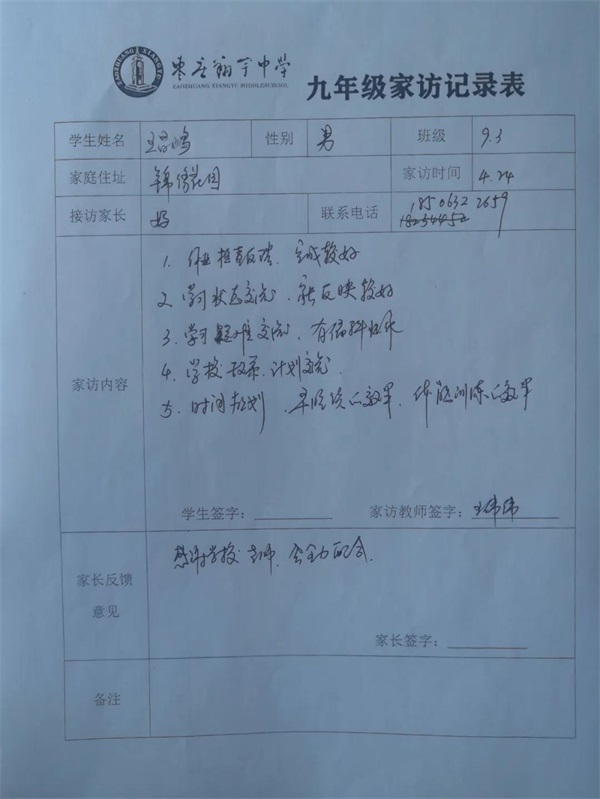 枣庄翔宇中学
ZAOZHUANG XIANGYU MIDDLESCHOOL
九年级家访记录表
学生姓名 性别 男 班级 9.3
家庭住址 锦绣花园 家访时间 4.24
接访家长 妈 联系电话 18506322659
家访内容
1. 作业检查反馈、完成较好
2. 学习状态交流、家反映较好
3. 学习疑难交流、有偏科
4. 学校政策、计划交流
5. 时间规划、早晚读效率、体能训练效率
学生签字： 家访教师签字：王伟伟
家长反馈
意见
感谢学校老师、全力配合.
家长签字：
备注